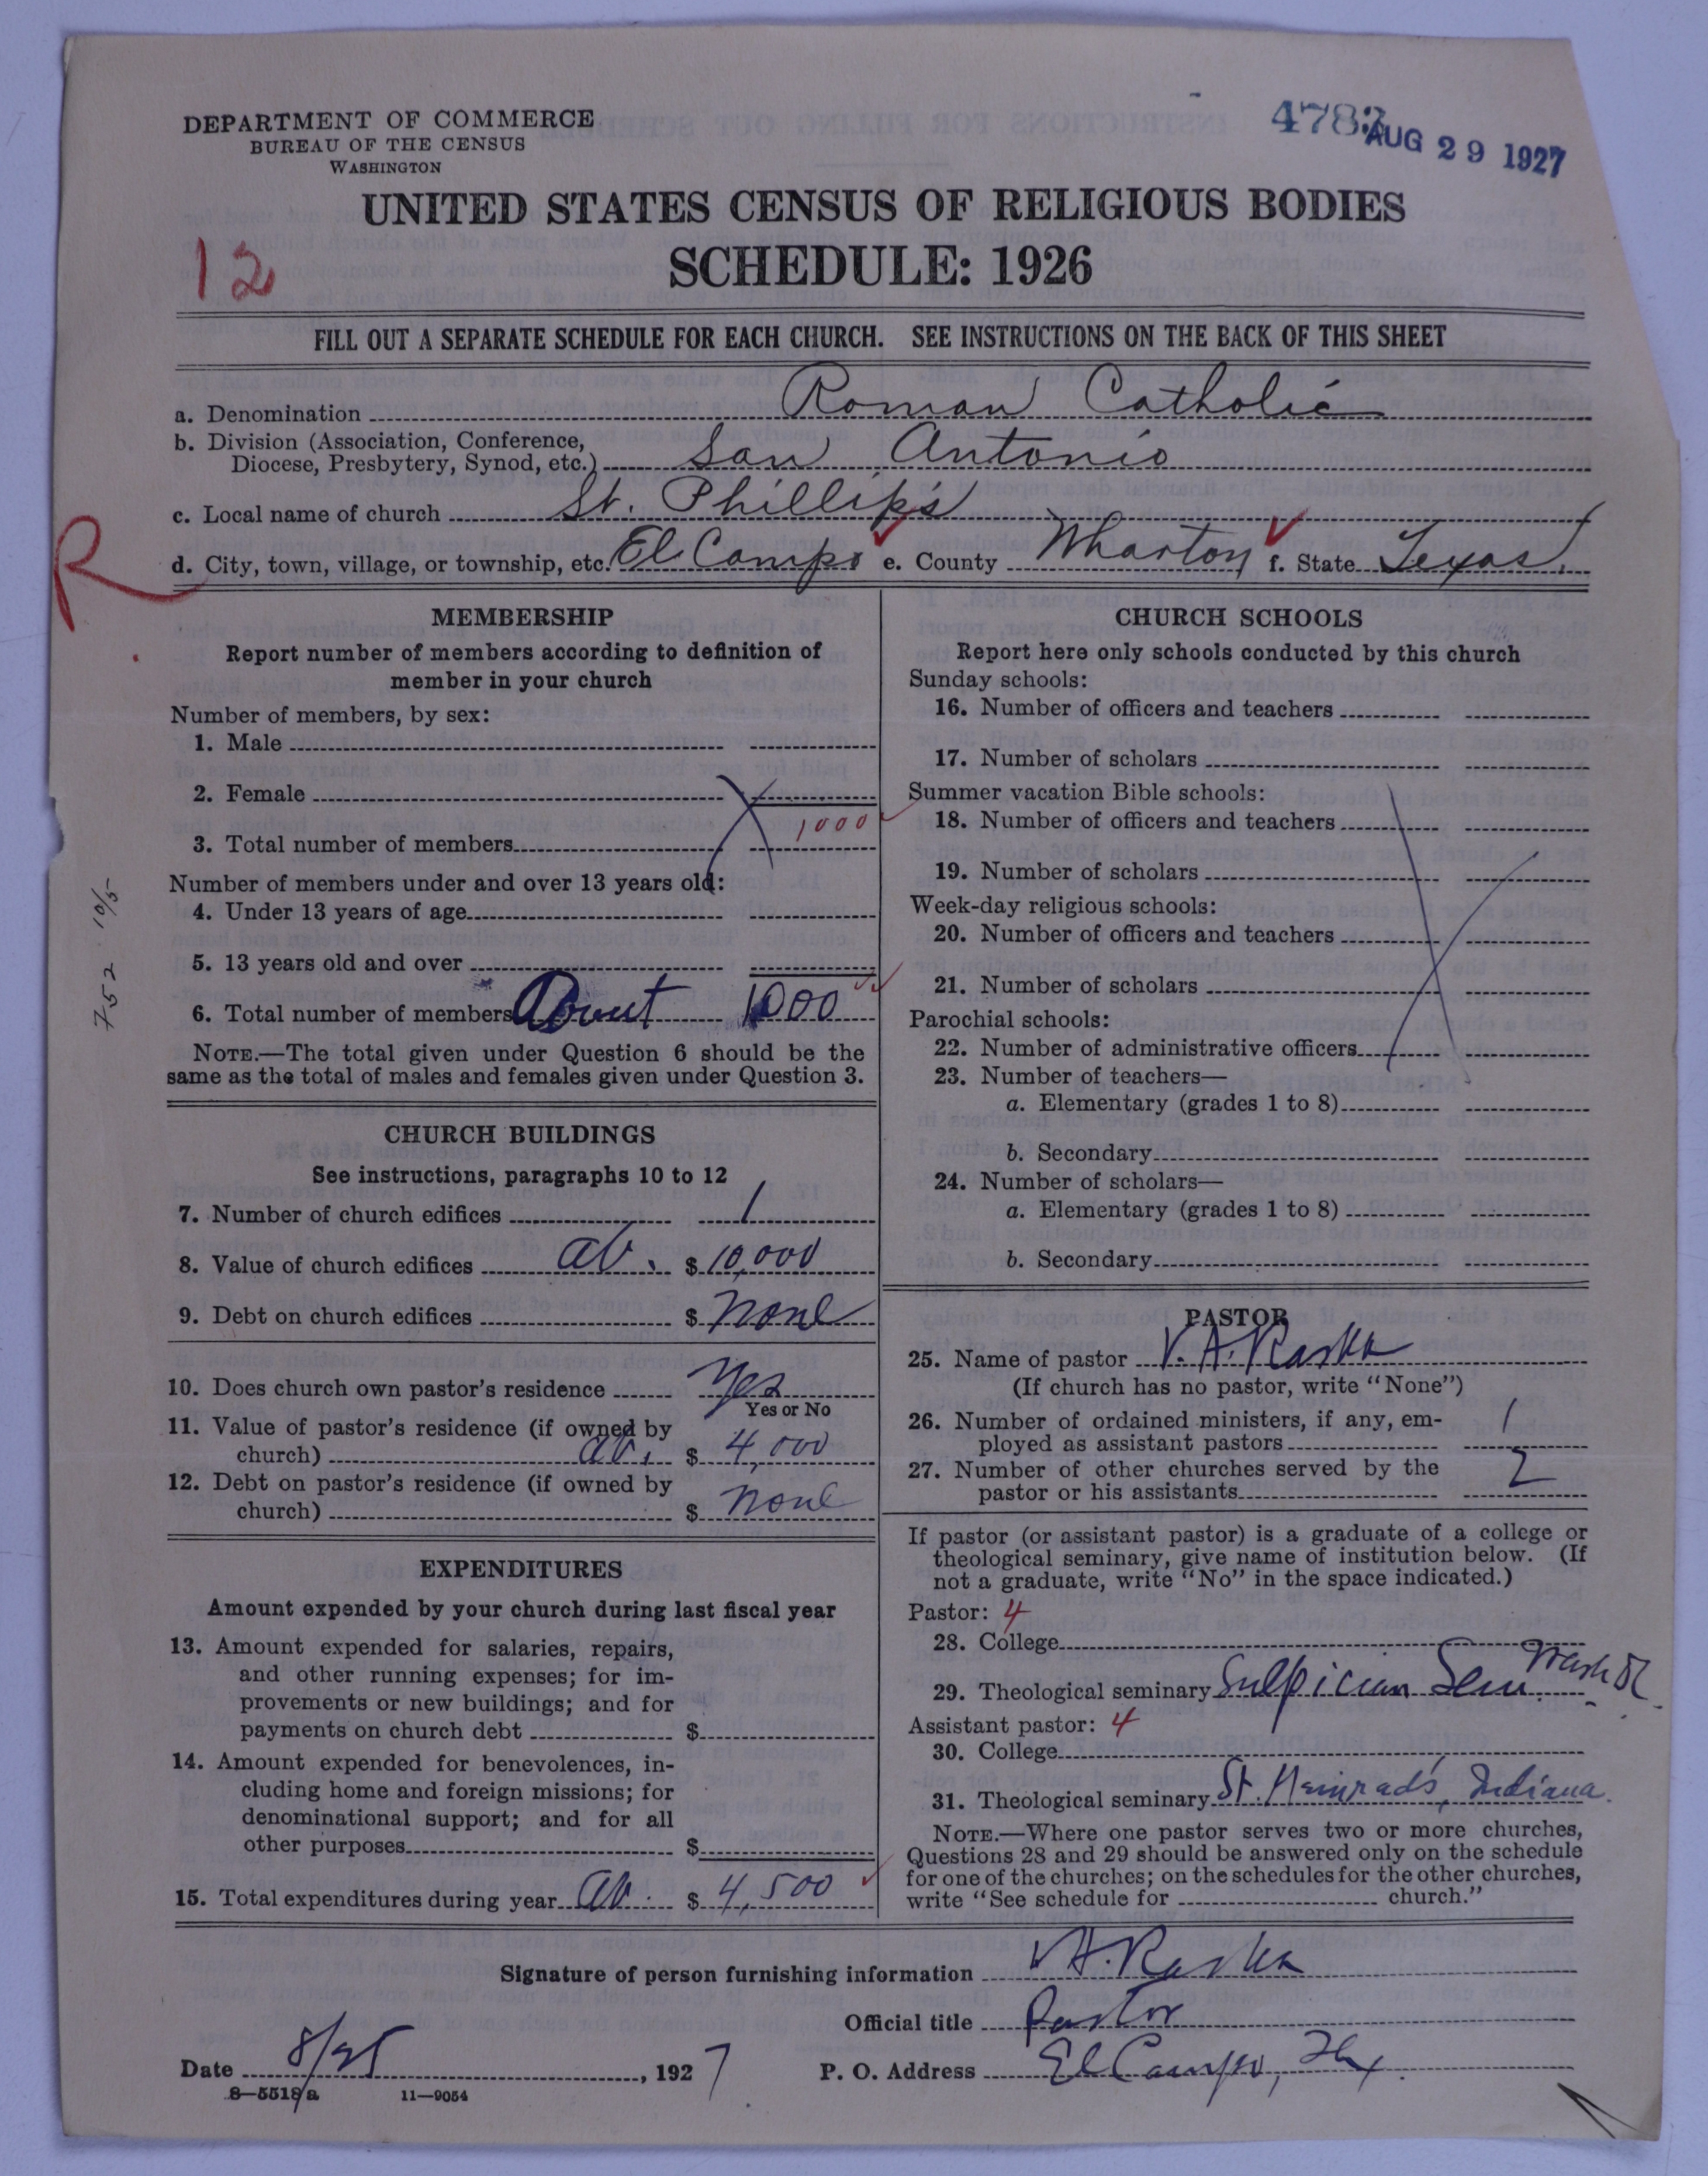 4783
AUG 29 1927
DEPARTMENT OF COMMERCE
BUREAU OF THE CENSUS
WASHINGTON
UNITED STATES CENSUS OF RELIGIOUS BODIES
SCHEDULE: 1926
12
FILL OUT A SEPARATE SCHEDULE FOR EACH CHURCH. SEE INSTRUCTIONS ON THE BACK OF THIS SHEET
a. Denomination Roman Catholic
b. Division (Association, Conference,
Diocese, Presbytery, Synod, etc.) San Antonio
c. Local name of church St. Phillip's
R
d. City, town, village, or township, etc. El Campo e. County Wharton f. State Texas.
MEMBERSHIP
Report number of members according to definition of
member in your church
Number of members, by sex:
1. Male
2. Female
1000
3. Total number of members
Number of members under and over 13 years old:
4. Under 13 years of age
5. 13 years old and over
6. Total number of members About 1000
NOTE.—The total given under Question 6 should be the
same as the total of males and females given under Question 3.
752 10/5
CHURCH BUILDINGS
See instructions, paragraphs 10 to 12
7. Number of church edifices 1
8. Value of church edifices ab. $ 10,000
9. Debt on church edifices $ None
10. Does church own pastor's residence Yes
Yes or No
11. Value of pastor's residence (if owned by
church) ab. $ 4,000
12. Debt on pastor's residence (if owned by
church) $ none
EXPENDITURES
Amount expended by your church during last fiscal year
13. Amount expended for salaries, repairs,
and other running expenses; for im-
provements or new buildings; and for
payments on church debt $
14. Amount expended for benevolences, in-
cluding home and foreign missions; for
denominational support; and for all
other purposes $
15. Total expenditures during year ab. $ 4,500
CHURCH SCHOOLS
Report here only schools conducted by this church
Sunday schools:
16. Number of officers and teachers
17. Number of scholars
Summer vacation Bible schools:
18. Number of officers and teachers
19. Number of scholars
Week-day religious schools:
20. Number of officers and teachers
21. Number of scholars
Parochial schools:
22. Number of administrative officers
23. Number of teachers—
a. Elementary (grades 1 to 8)
b. Secondary
24. Number of scholars—
a. Elementary (grades 1 to 8)
b. Secondary
PASTOR
25. Name of pastor V. A. Raska
(If church has no pastor, write "None")
26. Number of ordained ministers, if any, em-
ployed as assistant pastors 1
27. Number of other churches served by the
pastor or his assistants 2
If pastor (or assistant pastor) is a graduate of a college or
theological seminary, give name of institution below. (If
not a graduate, write "No" in the space indicated.)
Pastor: 4
28. College
29. Theological seminary Sulpician Sem. Wash DC.
Assistant pastor: 4
30. College
31. Theological seminary St. Meinrad's, Indiana.
NOTE.—Where one pastor serves two or more churches,
Questions 28 and 29 should be answered only on the schedule
for one of the churches; on the schedules for the other churches,
write "See schedule for church."
Signature of person furnishing information V A. Raska
Official title Pastor
Date 8/25, 1927 P. O. Address El Campo, Tex.
8—5518a 11—9054